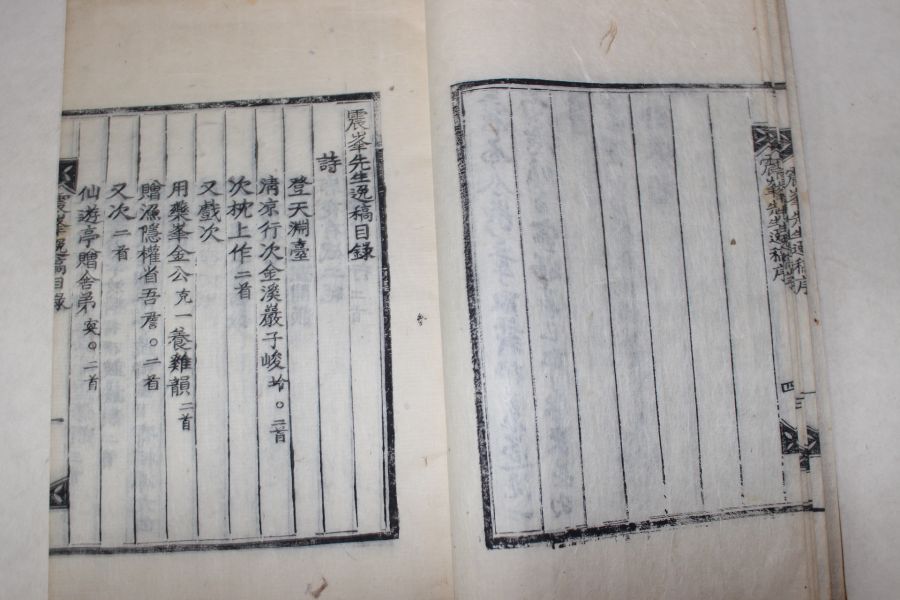 震峯先生逸稿序
四
震峯先生逸稿序
三
震峯先生逸稿目錄
詩
登天淵臺
清凉行次金溪巖子峻坽○二首
次枕上作二首
又戲次
用藥峯金公克一養雞韻二首
贈漁隱權省吾詹○二首
又次二首
仙遊亭贈舍弟 ○二首
震峯逸稿目錄
一